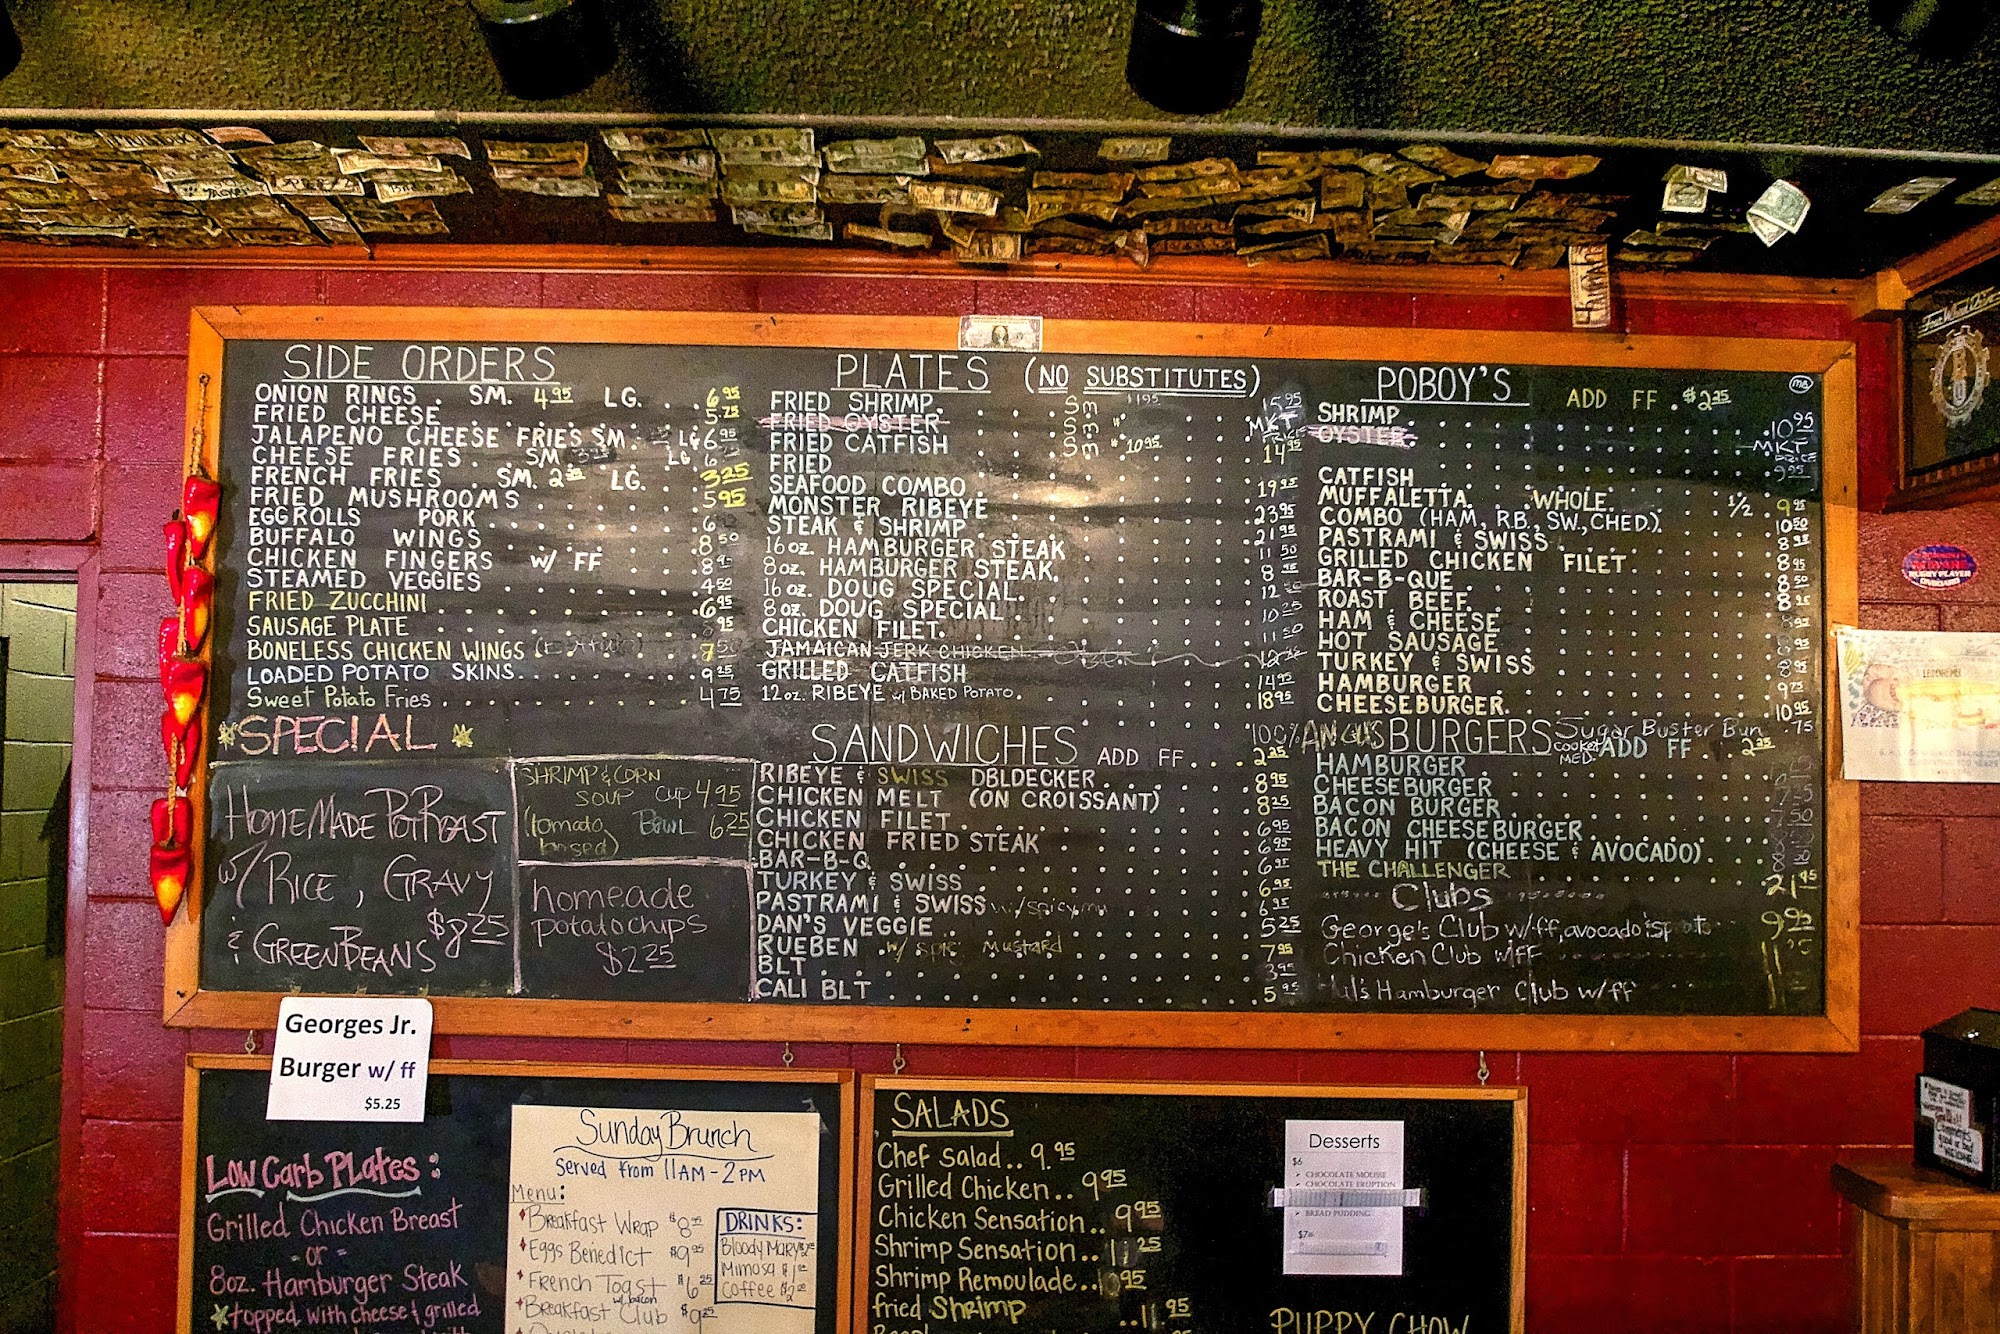 SIDE ORDERS
ONION RINGS . SM. 4.95 LG. . . 6.95
FRIED CHEESE 5.75
JALAPENO CHEESE FRIES SM. LG 6.95
CHEESE FRIES . SM LG
FRENCH FRIES . SM. LG. 3.25
FRIED MUSHROOMS 5.95
EGGROLLS PORK
BUFFALO WINGS 8.50
CHICKEN FINGERS w/ FF
STEAMED VEGGIES 4.50
FRIED ZUCCHINI 6.95
SAUSAGE PLATE
BONELESS CHICKEN WINGS
LOADED POTATO SKINS 9.25
Sweet Potato Fries 4.75
SPECIAL
HOMEMADE POTROAST
w/ RICE, GRAVY
& GREENBEANS $8.25
SHRIMP & CORN
SOUP CUP 4.95
(tomato BOWL 6.25
based)
homeade
potatochips
$2.25
PLATES (NO SUBSTITUTES)
FRIED SHRIMP Sm 15.95
FRIED OYSTER Sm MKT PRICE
FRIED CATFISH Sm 10.95 14.95
FRIED
SEAFOOD COMBO 19.95
MONSTER RIBEYE 23.95
STEAK & SHRIMP 21.95
16 oz. HAMBURGER STEAK 11.50
8 oz. HAMBURGER STEAK
16 oz. DOUG SPECIAL
8 oz. DOUG SPECIAL 10.25
CHICKEN FILET 11.50
JAMAICAN JERK CHICKEN
GRILLED CATFISH 14.95
12 oz. RIBEYE w/ BAKED POTATO. 18.95
SANDWICHES ADD FF . . 2.25
RIBEYE & SWISS DBLDECKER 8.95
CHICKEN MELT (ON CROISSANT) 8.25
CHICKEN FILET 6.95
CHICKEN FRIED STEAK 6.95
BAR-B-Q
TURKEY & SWISS 6.95
PASTRAMI & SWISS 6.95
DAN'S VEGGIE 5.25
RUEBEN w/ Mustard 7.95
BLT 3.95
CALI BLT 5.95
POBOY'S ADD FF . $2.25
MB
SHRIMP 10.95
OYSTER MKT PRICE
CATFISH 9.95
MUFFALETTA WHOLE 1/2 9.95
COMBO (HAM, R.B., SW., CHED.) 10.50
PASTRAMI & SWISS
GRILLED CHICKEN FILET 8.95
BAR-B-QUE 8.50
ROAST BEEF
HAM & CHEESE
HOT SAUSAGE
TURKEY & SWISS 8.95
HAMBURGER 9.75
CHEESEBURGER 10.95
100% ANGUS BURGERS Sugar Buster Bun .75
cooked MED. ADD FF
HAMBURGER
CHEESEBURGER
BACON BURGER
BACON CHEESEBURGER
HEAVY HIT (CHEESE & AVOCADO)
THE CHALLENGER 21.95
Clubs
George's Club w/ff, avocado 9.95
Chicken Club w/ff
Hamburger Club w/ff
Georges Jr.
Burger w/ ff
$5.25
LOW CARB PLATES:
Grilled Chicken Breast
- or -
8oz. Hamburger Steak
topped with cheese & grilled
Sunday Brunch
Served from 11AM - 2PM
Menu:
Breakfast Wrap
Eggs Benedict
French Toast
w/ bacon
Breakfast Club
DRINKS:
Bloody Mary
Mimosa
Coffee
SALADS
Chef Salad.. 9.95
Grilled Chicken.. 9.95
Chicken Sensation.. 9.95
Shrimp Sensation.. 11.25
Shrimp Remoulade.. 10.95
fried Shrimp ..11.95
Desserts
$6
CHOCOLATE MOUSSE
CHOCOLATE ERUPTION
BREAD PUDDING
PUPPY CHOW